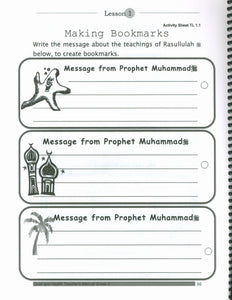 Lesson 1
Activity Sheet TL 1.1
Making Bookmarks
Write the message about the teachings of Rasulullah ﷺ
below, to create bookmarks.
Message from Prophet Muhammadﷺ
Message from Prophet Muhammadﷺ
Message from Prophet Muhammadﷺ